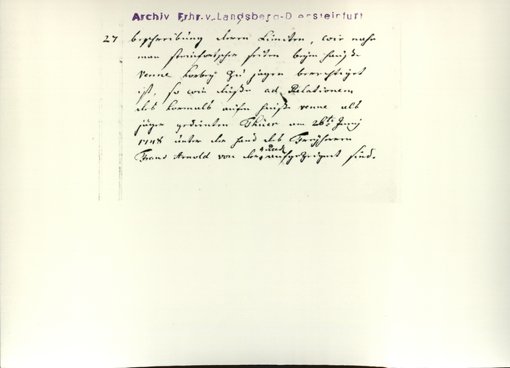 Archiv Frhr.v.Landsberg-D ensteinfurt
27 beschreibung deren Limiten, wie nahe
man steinfortscher seiten beym hauße
venne Vorbey zu jagen berechtiget
ist, so wie diese ad Relationem
des vormals aufm hauße venne als
jäger gedienten am 26ten Junij
1748 unter der hand des Freyherren
Franz Arnold von der aufgezeignet sind.